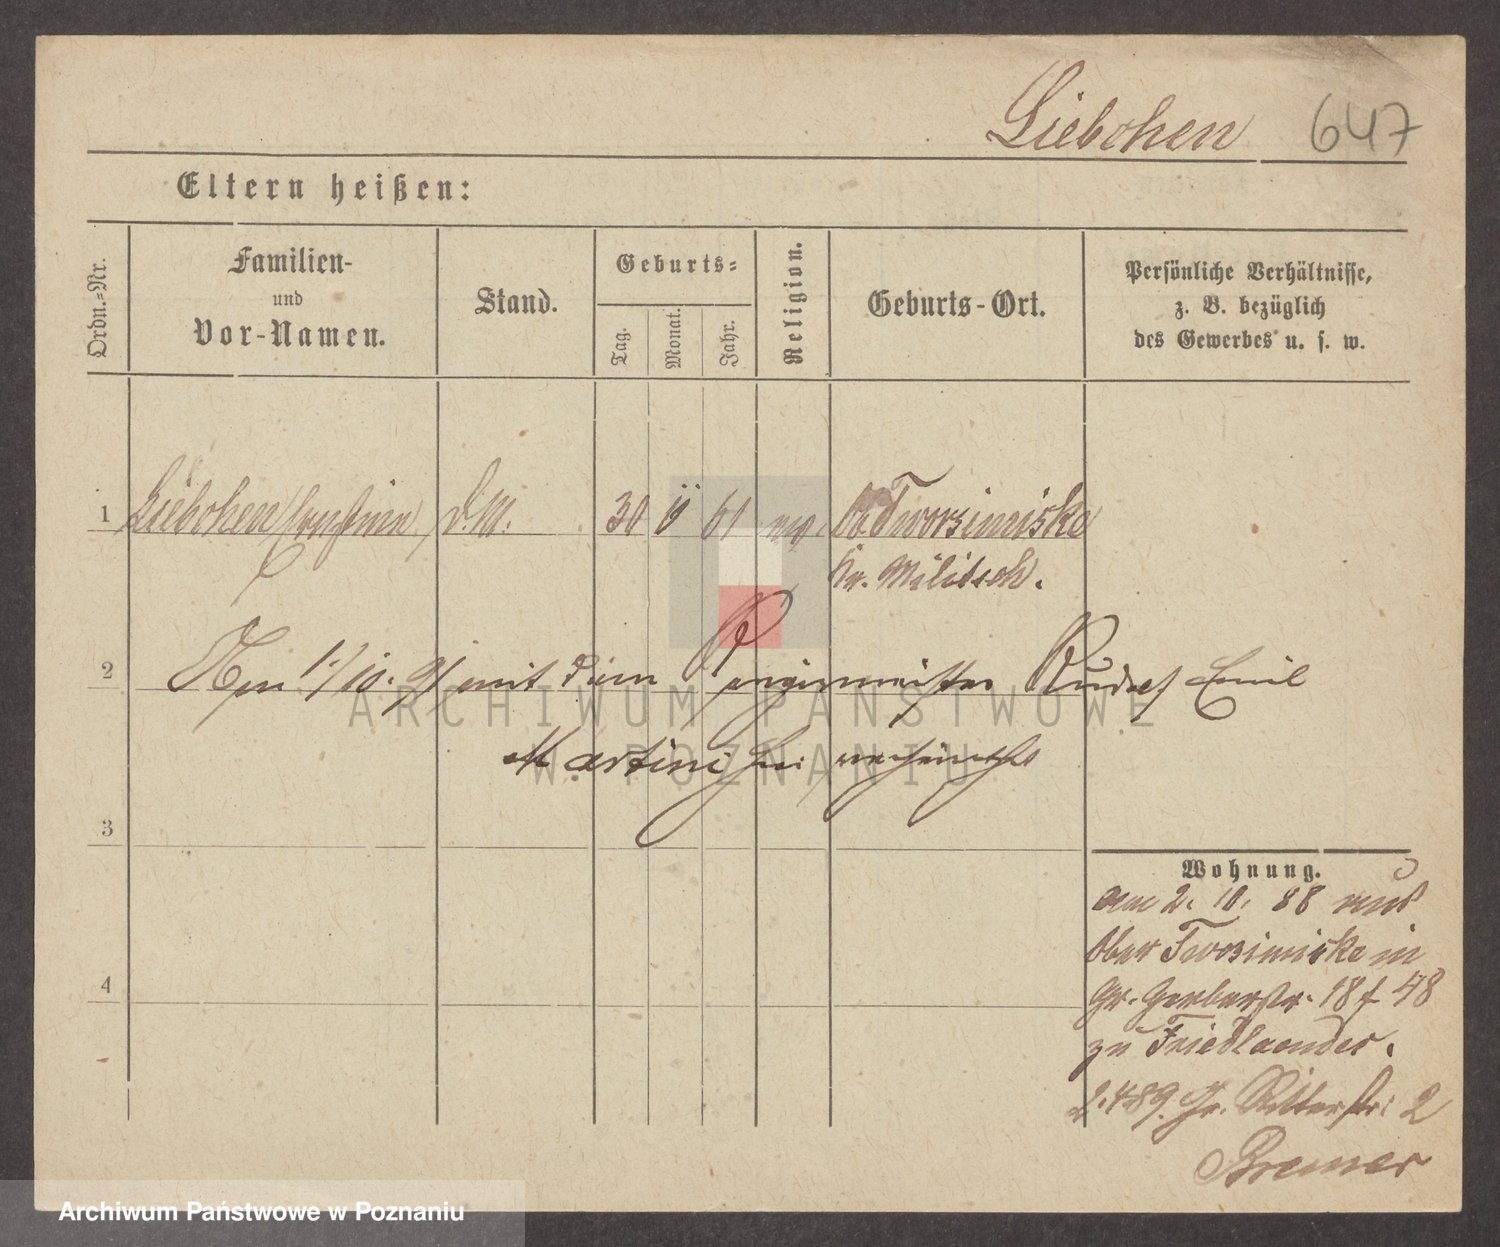 Liebchen 647
Eltern heißen:
Ordn.-Nr.
Familien-
und
Vor-Namen.
Stand.
Geburts-
Tag.
Monat.
Jahr.
Religion.
Geburts-Ort.
Persönliche Verhältnisse,
z. B. bezüglich
des Gewerbes u. s. w.
1 Liebchen D.M. 30 61 Ob Tworsimirke
Kr. Militsch.
2 Am 1./10. 91 mit dem Rudolf Emil
Martini verheirathet
3
4
Wohnung.
am 2. 10. 88 aus
Ober Tworsimirke in
Gr. Gerberstr. 18
zu Friedlaender.
2.4 89. Gr. Ritterstr: 2
Bremer
ARCHIWUM PAŃSTWOWE
W POZNANIU
Archiwum Państwowe w Poznaniu